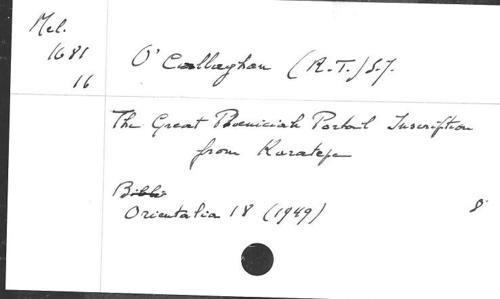 Mel.
1681
16
O'Callaghan (R.T.) S.J.
The Great Phoenician Portail Inscription
from Karatepe
Bibli
Orientalia 18 (1949) 8°